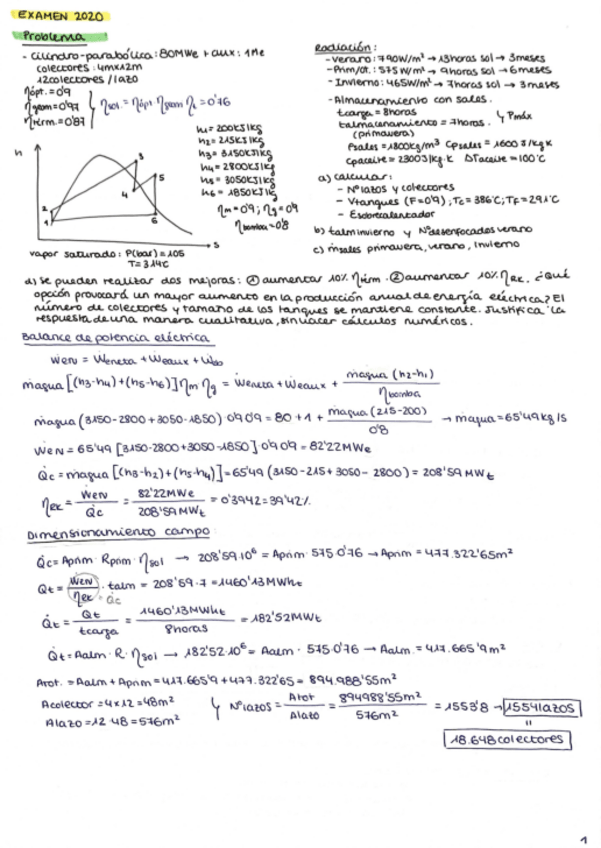 EXAMEN 2020
Problema
- Cilindro-parabólica: 80MWe + aux: 1Me
colectores: 4mx12m
12colectores / lazo
ηópt. = 0'9
ηgeom = 0'97
ηtérm. = 0'87
ηsol. = ηópt. ηgeom ηt = 0'76
h1 = 200KJ/Kg
h2 = 215KJ/Kg
h3 = 3150KJ/Kg
h4 = 2800KJ/Kg
h5 = 3050KJ/Kg
h6 = 1850KJ/Kg
ηm = 0'9; ηg = 0'9
ηbomba = 0'8
h
1
2
3
4
5
6
s
vapor saturado: P(bar) = 105
T = 314ºC
Radiación:
- Verano: 790W/m² → 13horas sol → 3meses
- Prim/ot.: 575W/m² → 9horas sol → 6meses
- Invierno: 465W/m² → 7horas sol → 3meses
- Almacenamiento con sales.
tcarga = 8horas
talmacenamiento = 7horas.
Pmáx
(primavera)
ρsales = 1800Kg/m³ Cpsales = 1600 J/Kg K
Cpaceite = 2300J/Kg·K ΔTaceite = 100ºC
a) calcular:
- Nº lazos y colectores
- Vtanques (F = 0'9); Tc = 386ºC; TF = 291ºC
- Esobrecalentador
b) talm invierno y Nº desenfocados verano
c) ṁsales primavera, verano, invierno
d) se pueden realizar dos mejoras: ① aumentar 10% ηtérm. ② aumentar 10% ηRK. ¿Qué
opción provocará un mayor aumento en la producción anual de energía eléctrica? El
número de colectores y tamaño de los tanques se mantiene constante. Justifica la
respuesta de una manera cualitativa, sin hacer cálculos numéricos.
Balance de potencia eléctrica
WEN = Wneta + Weaux +
ṁagua [(h3-h4) + (h5-h6)] ηm ηg = Wneta + Weaux + ṁagua (h2-h1) / ηbomba
ṁagua (3150-2800 + 3050-1850) 0'9 0'9 = 80 + 1 + ṁagua (215-200) / 0'8 → ṁagua = 65'49 kg/s
WEN = 65'49 [3150-2800 + 3050-1850] 0'9 0'9 = 82'22 MWe
Q̇c = ṁagua [(h3-h2) + (h5-h4)] = 65'49 (3150-215 + 3050-2800) = 208'59 MWt
ηRK = WEN / Q̇c = 82'22 MWe / 208'59 MWt = 0'3942 = 39'42%
Dimensionamiento campo
Q̇c = Aprim · Rprim · ηsol → 208'59·10⁶ = Aprim · 575 · 0'76 → Aprim = 477.322'65m²
Qt = WEN / ηRK · talm = 208'59 · 7 = 1460'13 MWht
= Q̇c
Q̇t = Qt / tcarga = 1460'13 MWht / 8horas = 182'52 MWt
Q̇t = Aalm · R · ηsol → 182'52·10⁶ = Aalm · 575 · 0'76 → Aalm = 417.665'9 m²
Atot. = Aalm + Aprim = 417.665'9 + 477.322'65 = 894.988'55m²
Acolector = 4 x 12 = 48m²
Alazo = 12 · 48 = 576m²
Nº lazos = Atot / Alazo = 894988'55m² / 576m² = 1553'8 → 1554 lazos
=
18.648 colectores
1